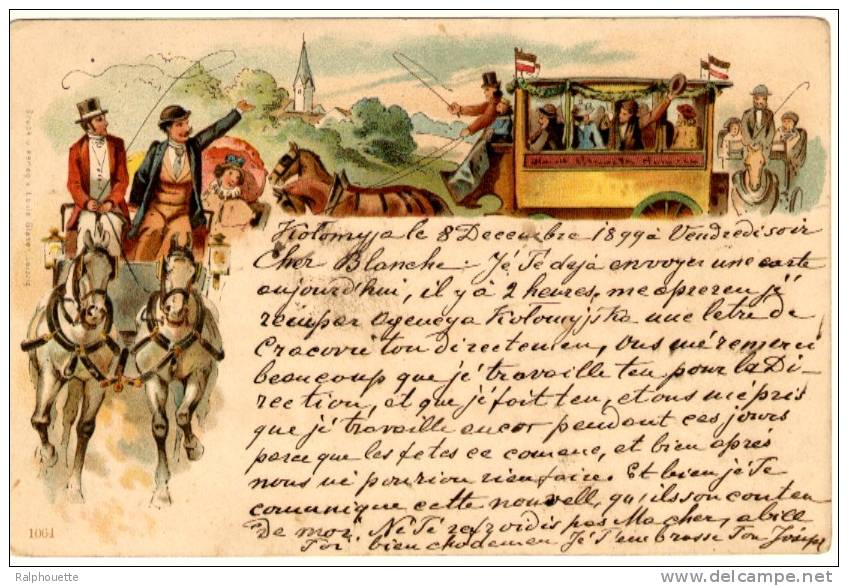 Kołomyja le 8 Decembre 1899 à Vendredi soir
Cher Blanche: Jé Té dejà envoyer une carte
aujourd'hui, il y à 2 heures, me apreren j'é
reçu par Agencya Kołomyjska une letre de
Cracovri ton directemen, Ons mé remerci
beaucoup que jé travaille ten pour la Di-
rection, et que jé fait ten, et ons mé pris
que jé travaille ancor pendant ces jours
parce que les fetes ce comance, et bien après
nous né pourion rien faire. Et bien jé Te
comunique cette nouvell, qu'ils son conten
De moi. Né Té refroidis pas Ma cher, abill
Toi bien chodemen Jé T'embrasse Ton Joseph
1061
Ralphouette
delcampe.net